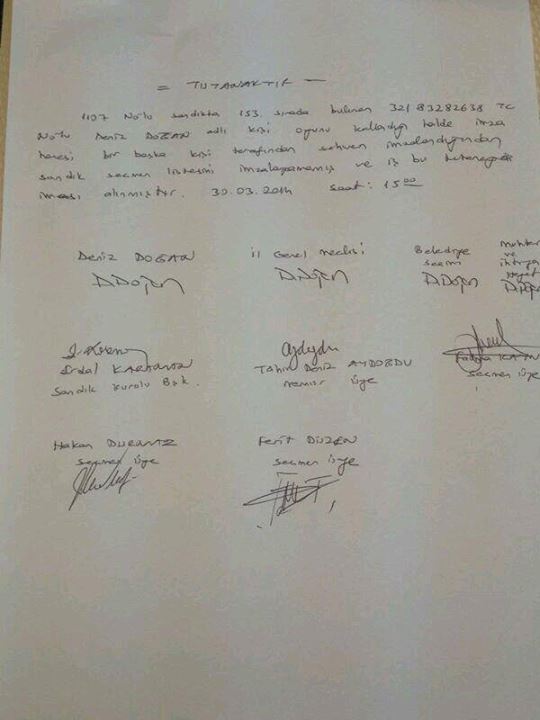 = TUTANAKTIR —
1107 No'lu sandıkta 153. sırada bulunan 32183282638 TC
No'lu Deniz DOĞAN adlı kişi oyunu kullandığı halde imza
hanesi bir başka kişi tarafından sehven imzalandığından
sandık seçmen listesini imzalayamamış ve iş bu tutanağa
imzası alınmıştır. 30.03.2014 saat: 15 00
Deniz DOĞAN il Genel meclisi Belediye seçimi muhtar ve ihtiyar
D.Doğan D.Doğan D.Doğan
Erdal Tahir Deniz AYDOĞDU Fatma
Sandık Kurulu Bşk. memur üye seçmen üye
Hakan Ferit DÜZEN
seçmen üye seçmen üye